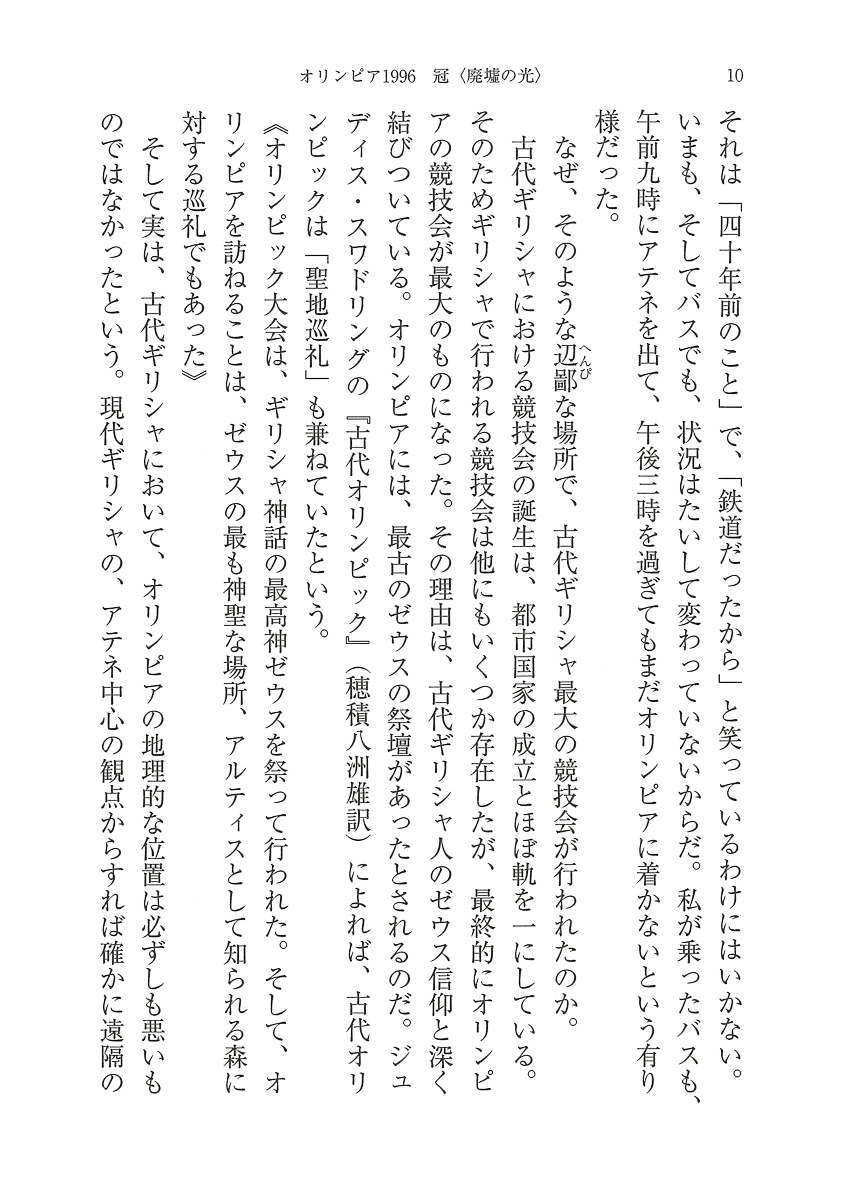 オリンピア1996　冠〈廃墟の光〉
10
それは「四十年前のこと」で、「鉄道だったから」と笑っているわけにはいかない。
いまも、そしてバスでも、状況はたいして変わっていないからだ。私が乗ったバスも、
午前九時にアテネを出て、午後三時を過ぎてもまだオリンピアに着かないという有り
様だった。
　なぜ、そのような辺鄙な場所で、古代ギリシャ最大の競技会が行われたのか。
へんぴ
　古代ギリシャにおける競技会の誕生は、都市国家の成立とほぼ軌を一にしている。
そのためギリシャで行われる競技会は他にもいくつか存在したが、最終的にオリンピ
アの競技会が最大のものになった。その理由は、古代ギリシャ人のゼウス信仰と深く
結びついている。オリンピアには、最古のゼウスの祭壇があったとされるのだ。ジュ
ディス・スワドリングの『古代オリンピック』（穂積八洲雄訳）によれば、古代オリ
ンピックは「聖地巡礼」も兼ねていたという。
《オリンピック大会は、ギリシャ神話の最高神ゼウスを祭って行われた。そして、オ
リンピアを訪ねることは、ゼウスの最も神聖な場所、アルティスとして知られる森に
対する巡礼でもあった》
　そして実は、古代ギリシャにおいて、オリンピアの地理的な位置は必ずしも悪いも
のではなかったという。現代ギリシャの、アテネ中心の観点からすれば確かに遠隔の